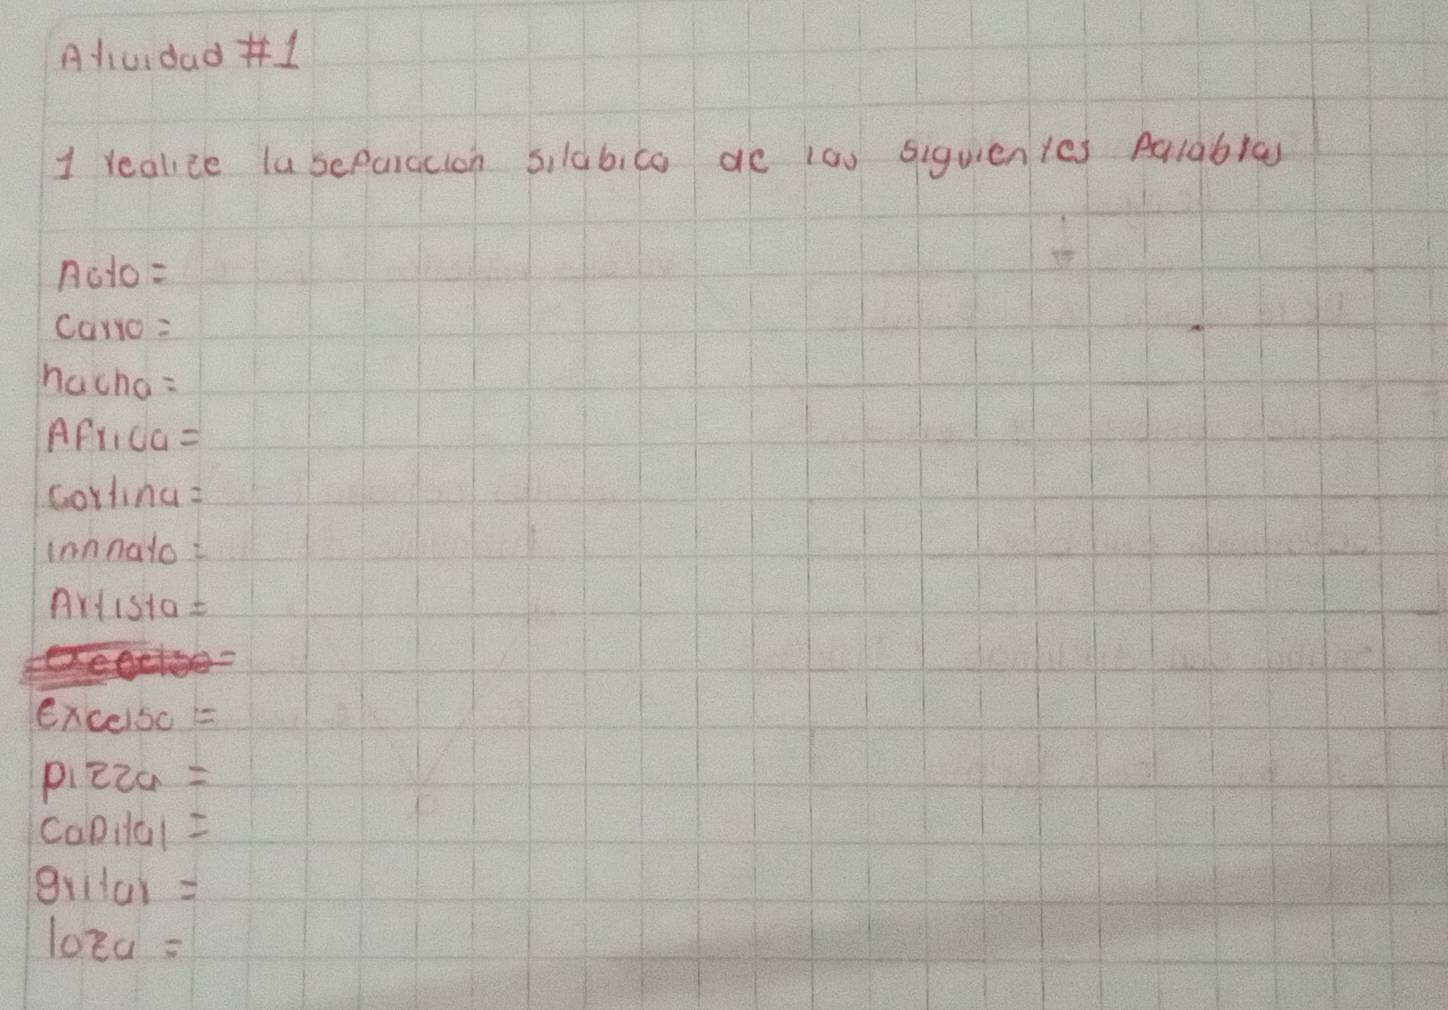 Atividad #1
1 realize la separación silabica de las siguientes Palabras
Acto=
carro=
hacha=
Africa=
cortina=
innnato=
Artista=
excelso=
pizza=
capital=
gritar=
loza=